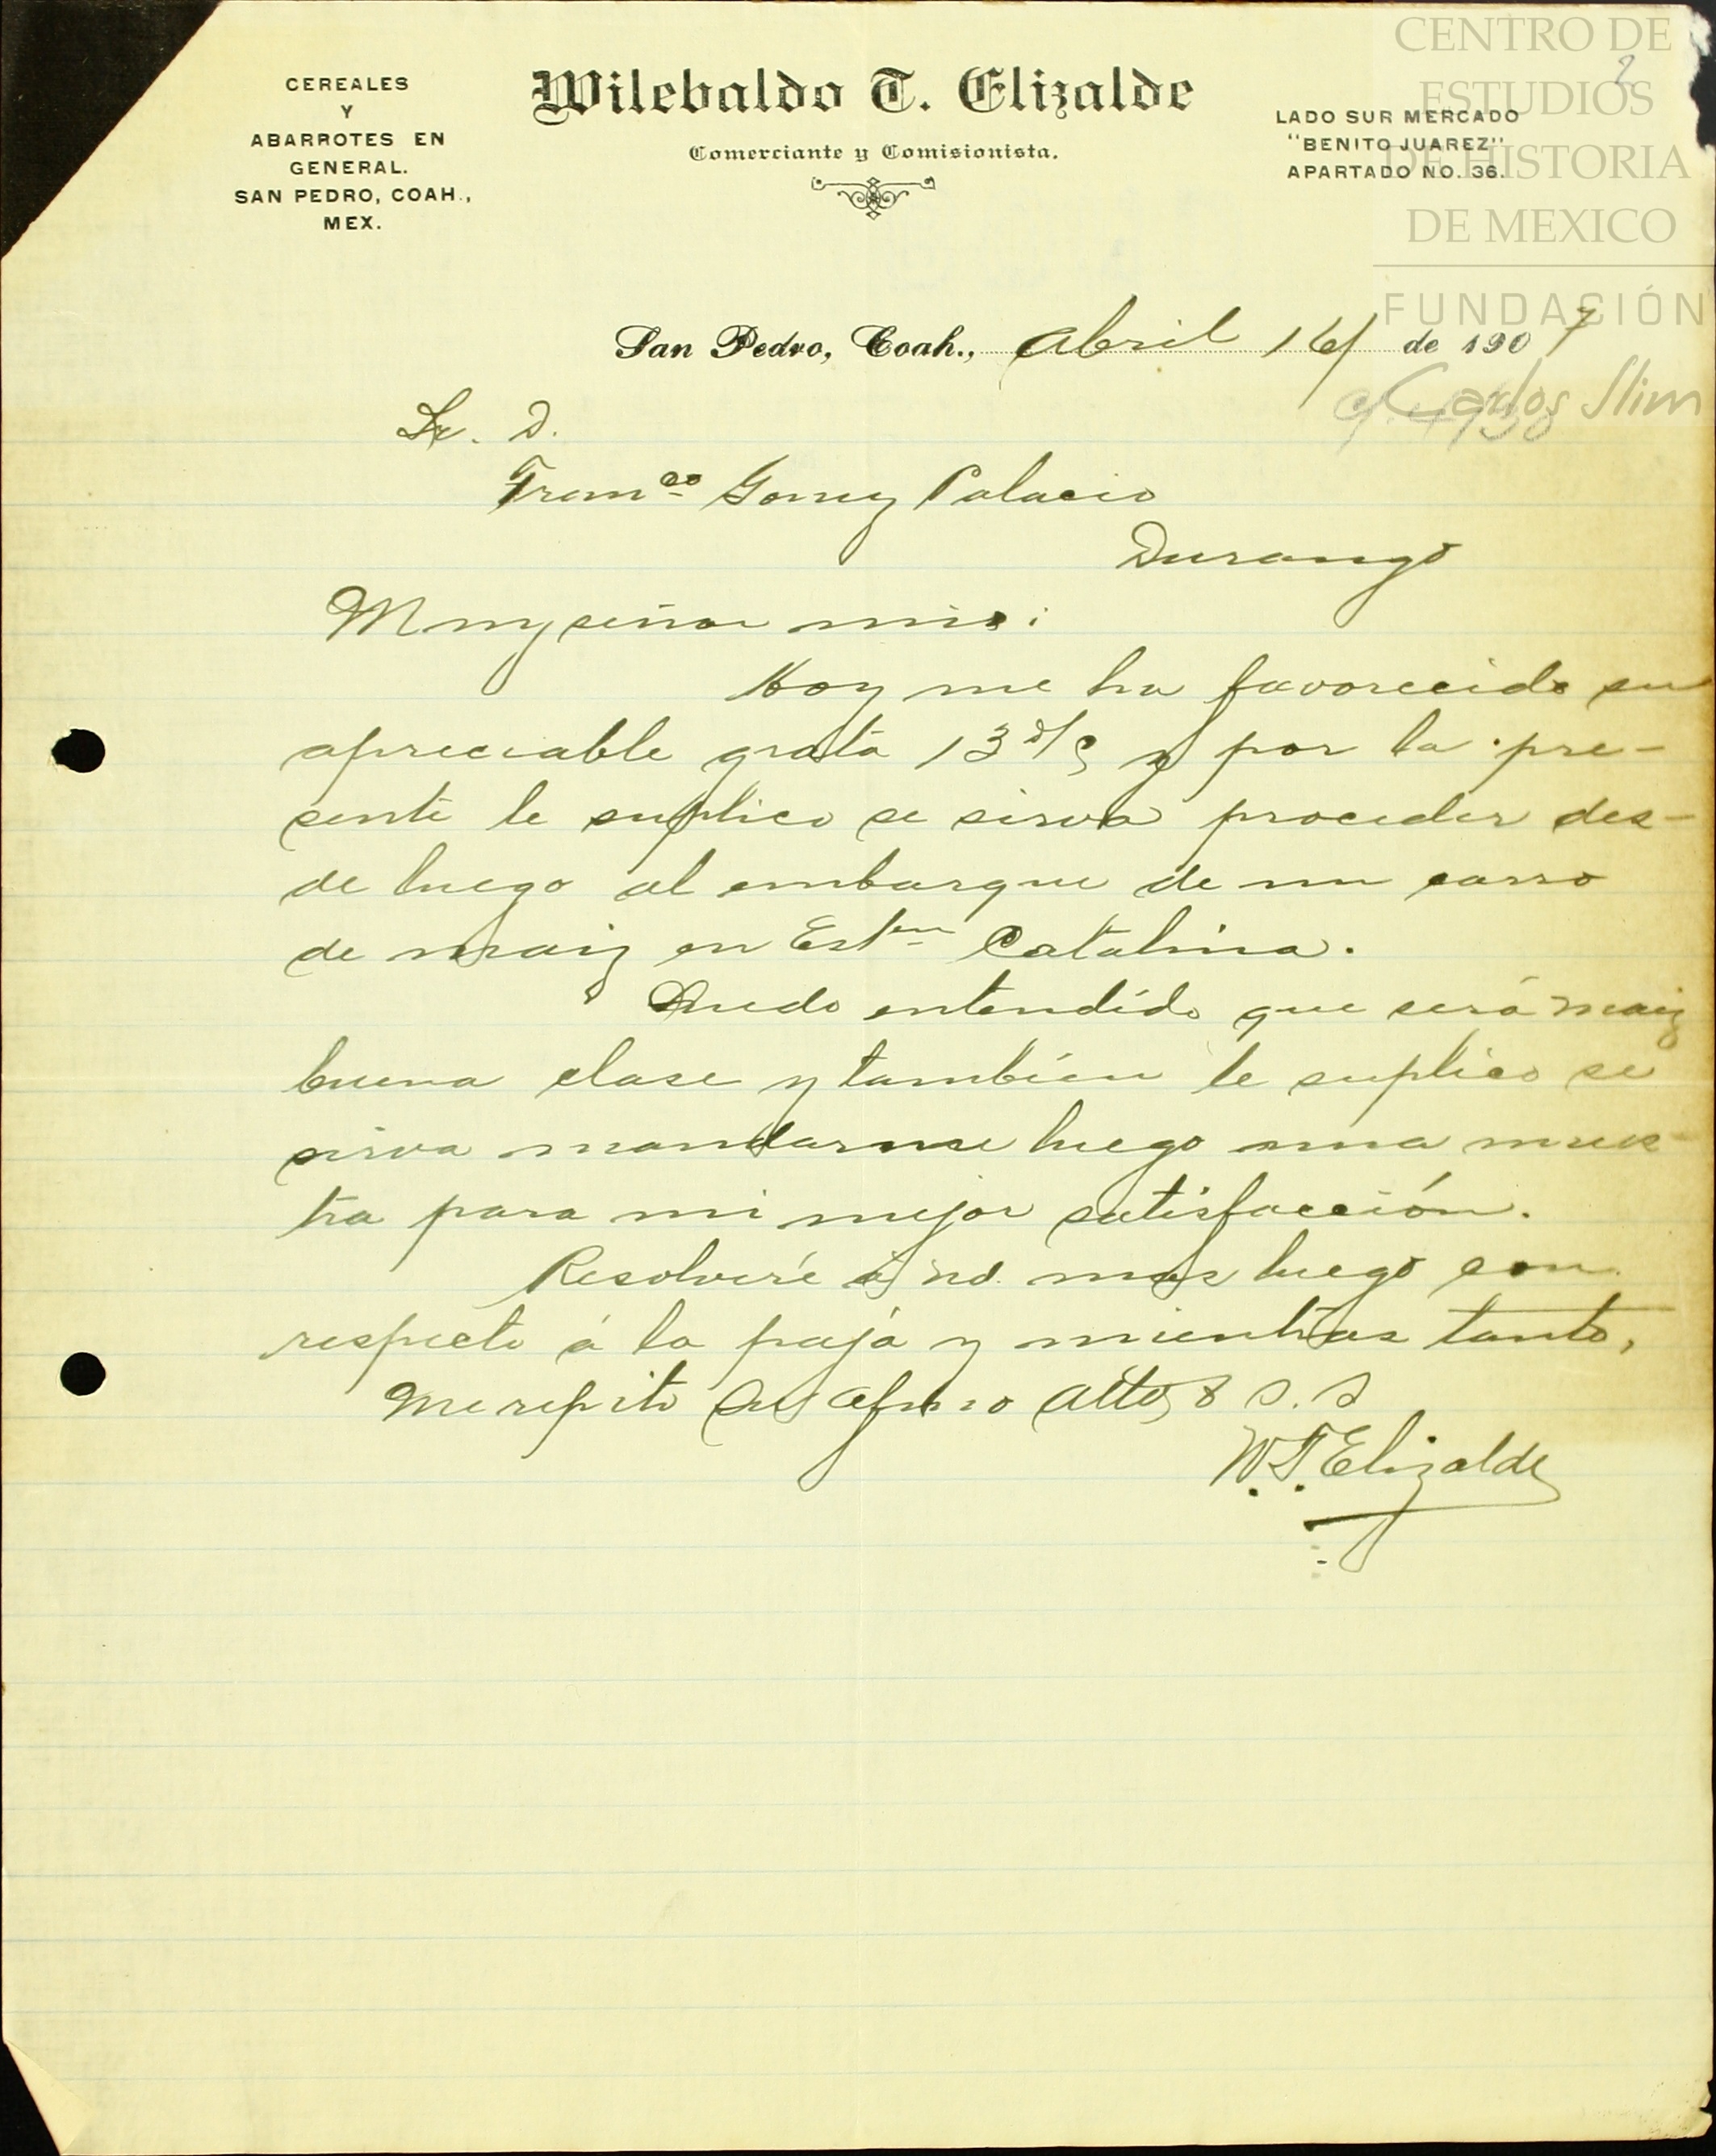 CEREALES
Y
ABARROTES EN
GENERAL.
SAN PEDRO, COAH.,
MEX.
Wilebaldo T. Elizalde
Comerciante y Comisionista.
LADO SUR MERCADO
"BENITO JUAREZ"
APARTADO NO. 36.
CENTRO DE
ESTUDIOS
DE HISTORIA
DE MEXICO
FUNDACIÓN
Carlos Slim
2
San Pedro, Coah., Abril 16 de 1907
Sr. D.
Franco Gomez Palacio
Durango
Muy señor mio:
Hoy me ha favorecido su
apreciable grata 13 y por la pre-
sente le suplico se sirva proceder des-
de luego al embarque de un carro
de maiz en Estn Catalina.
Quedo entendido que será maiz
buena clase y también le suplico se
sirva mandarme luego una mues-
tra para mi mejor satisfacción.
Resolveré á Ud. mas luego con
respecto á la paja y mientras tanto,
me repito Su afmo atto y S. S
W.T. Elizalde